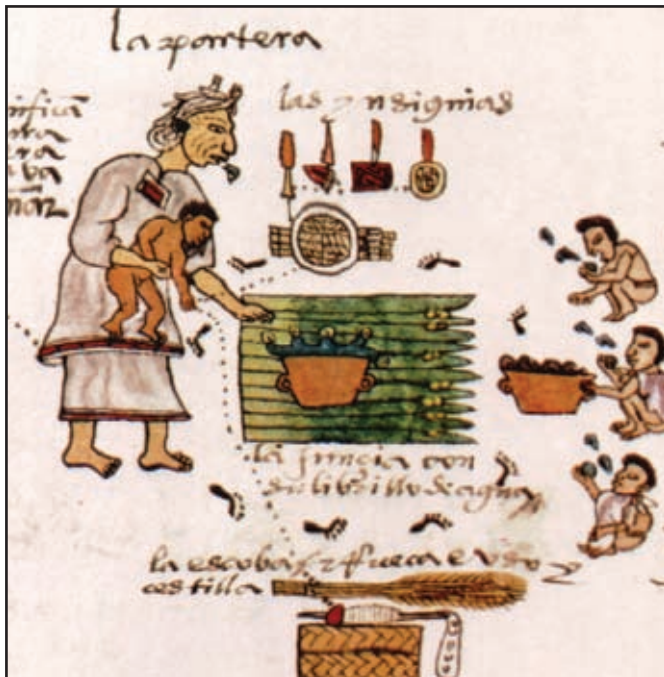 la partera
las ynsignias
nifica
va
la juncia con
su librillo de agua
la escoba y rrueca e uso y
cestilla